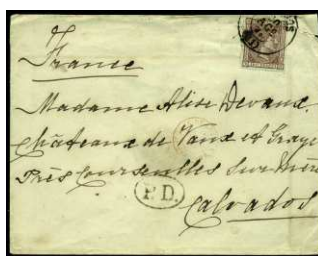 France
Madame Alise Devaux
Châteaux de Vaux et Graye
Près Courseulles Sur Mer
P.D.
Calvados